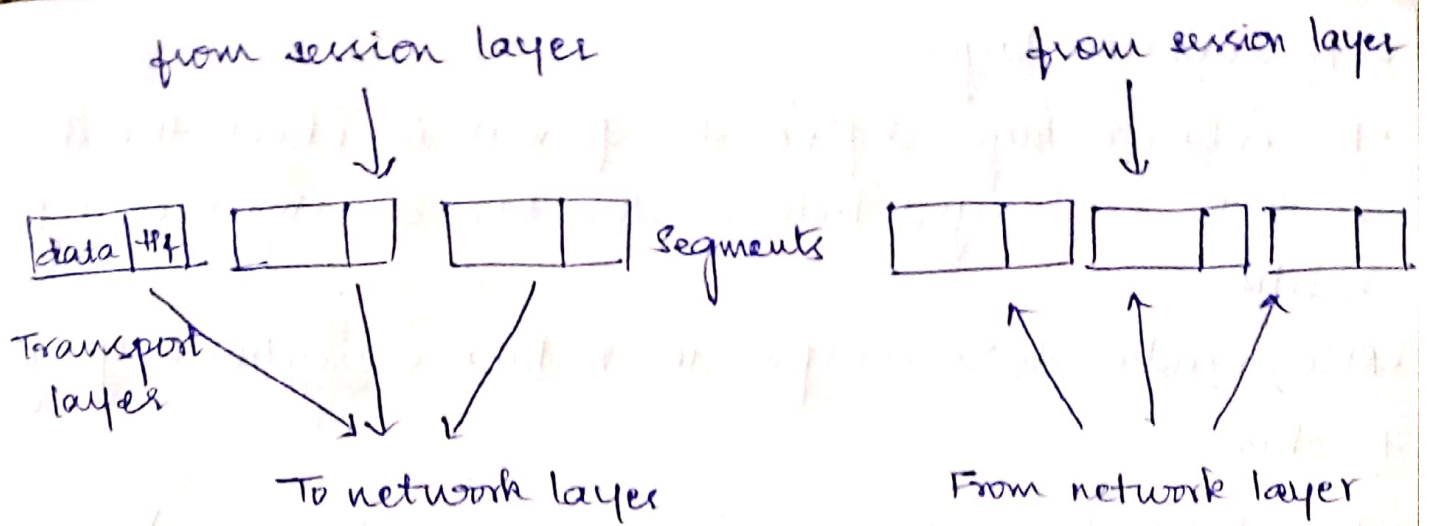 from session layer
from session layer
data H4
Segments
Transport
layer
To network layer
From network layer